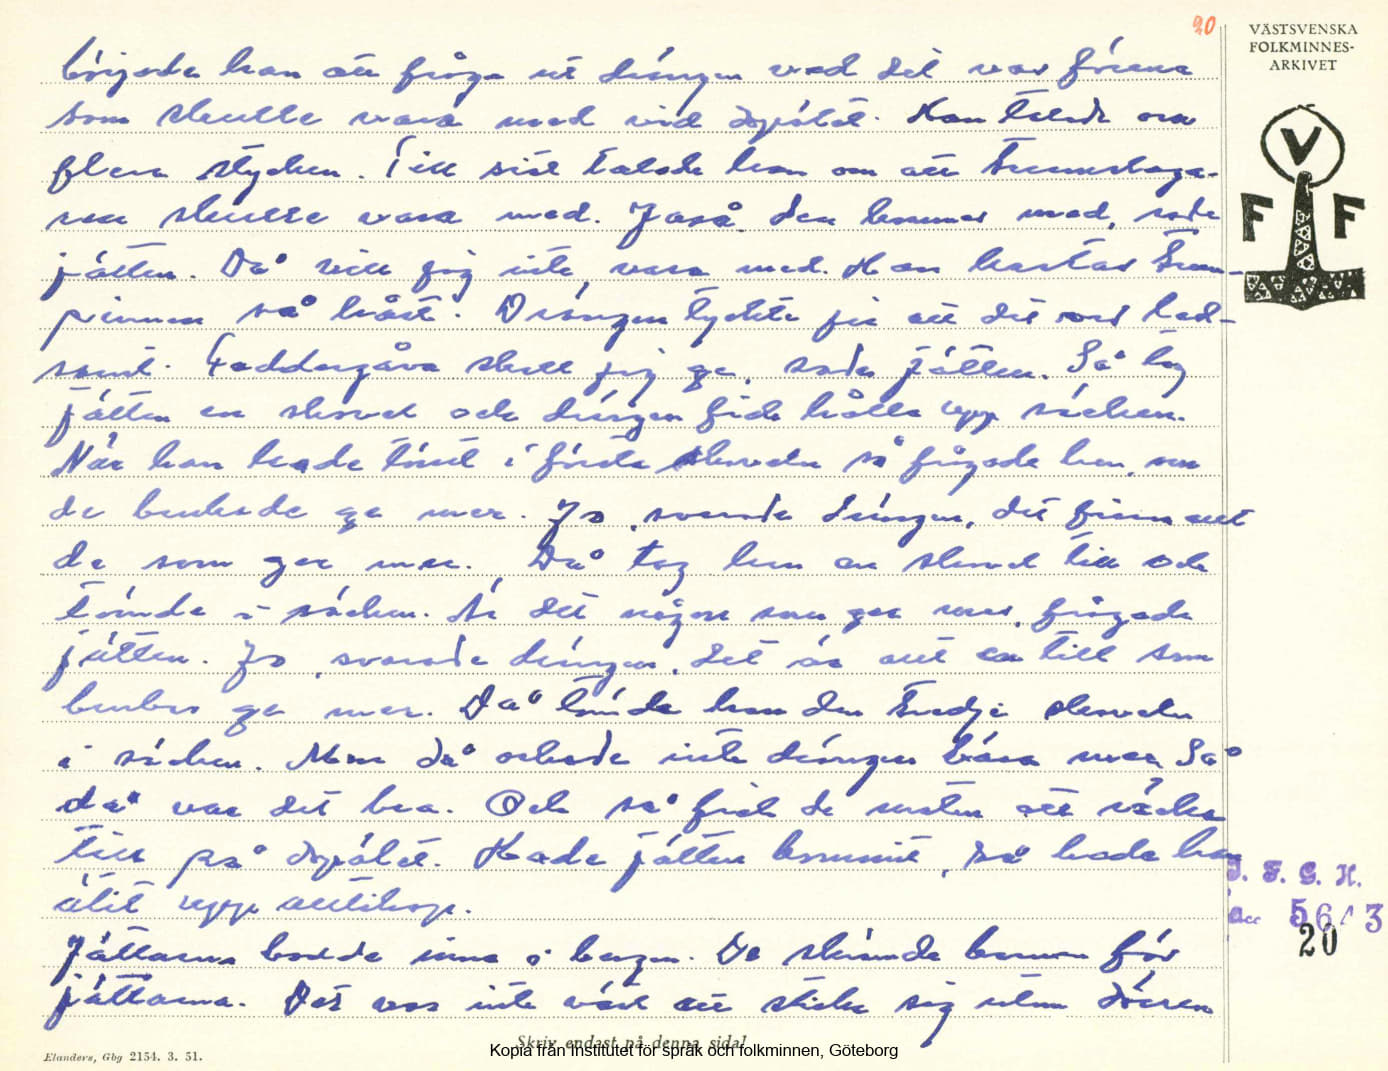 20
VÄSTSVENSKA
FOLKMINNES-
ARKIVET
började han att fråga ut drängen vad det var för ena
som skulle vara med vid dopölet. Han talade om
flera stycken. Till sist talade han om att Trumslaga-
ren skulle vara med. Jaså den kommer med, sade
jätten. Då vill jag inte vara med. Han kastar trum-
pinnen så hårt. Drängen tyckte ju att det var led-
samt. Faddergåva skall jag ge, sade jätten. Så tog
jätten en skovel och drängen fick hålla upp säcken.
När han hade töst i första skoveln så frågade han, om
de brukade ge mer. Jo, svarade drängen, det finns allt
de som ger mer. Då tog han en skovel till och
tömde i säcken. Är det någon som ger mer, frågade
jätten. Jo, svarade drängen, det är allt en till som
brukar ge mer. Då tömde han den tredje skoveln
i säcken. Men då orkade inte drängen bära mer. Så
då var det bra. Och så fick de resten att räcka
till på dopölet. Hade jätten kommit, så hade han
ätit upp alltihop.
Jättarna bodde inne i bergen. De skrämde barnen för
jättarna. Det var inte värt att sticka sig utom dörren
V
F F
I. F. G. H.
Acc 5643
20
Skriv endast på denna sida!
Elanders, Gbg 2154. 3. 51.
Kopia från Institutet för språk och folkminnen, Göteborg